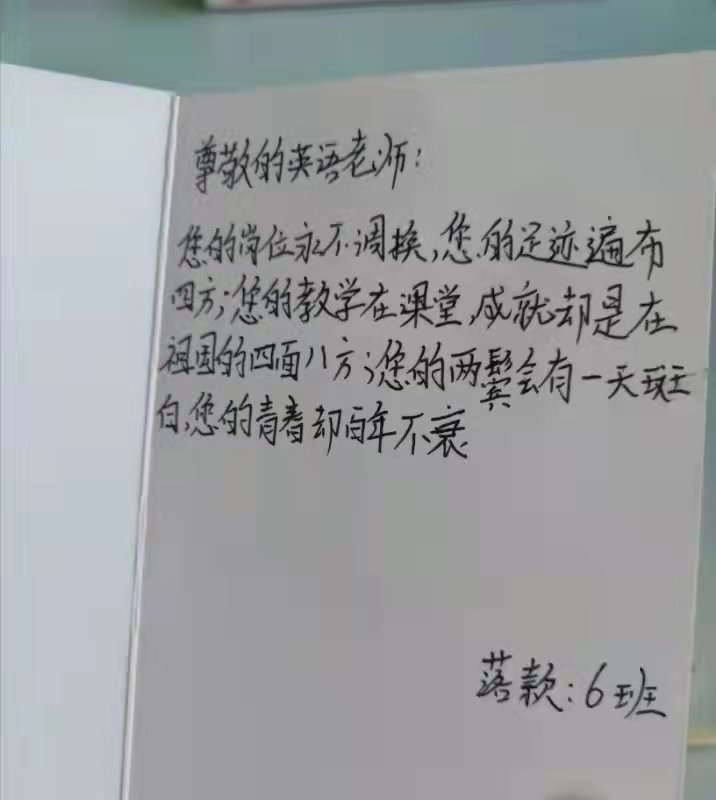 尊敬的英语老师：
您的岗位永不调换，您的足迹遍布
四方；您的教学在课堂，成就却是在
祖国的四面八方；您的两鬓会有一天斑
白，您的青春却百年不衰
落款：6班